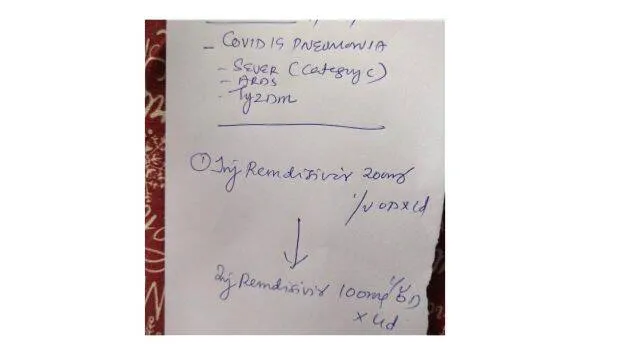 - COVID 19 PNEUMONIA
- SEVER (Category C)
- ARDS
- Ty2DM
① Inj Remdisivir 200mg
i/v OD x 1d
Inj Remdisivir 100mg i/v OD
x 4d